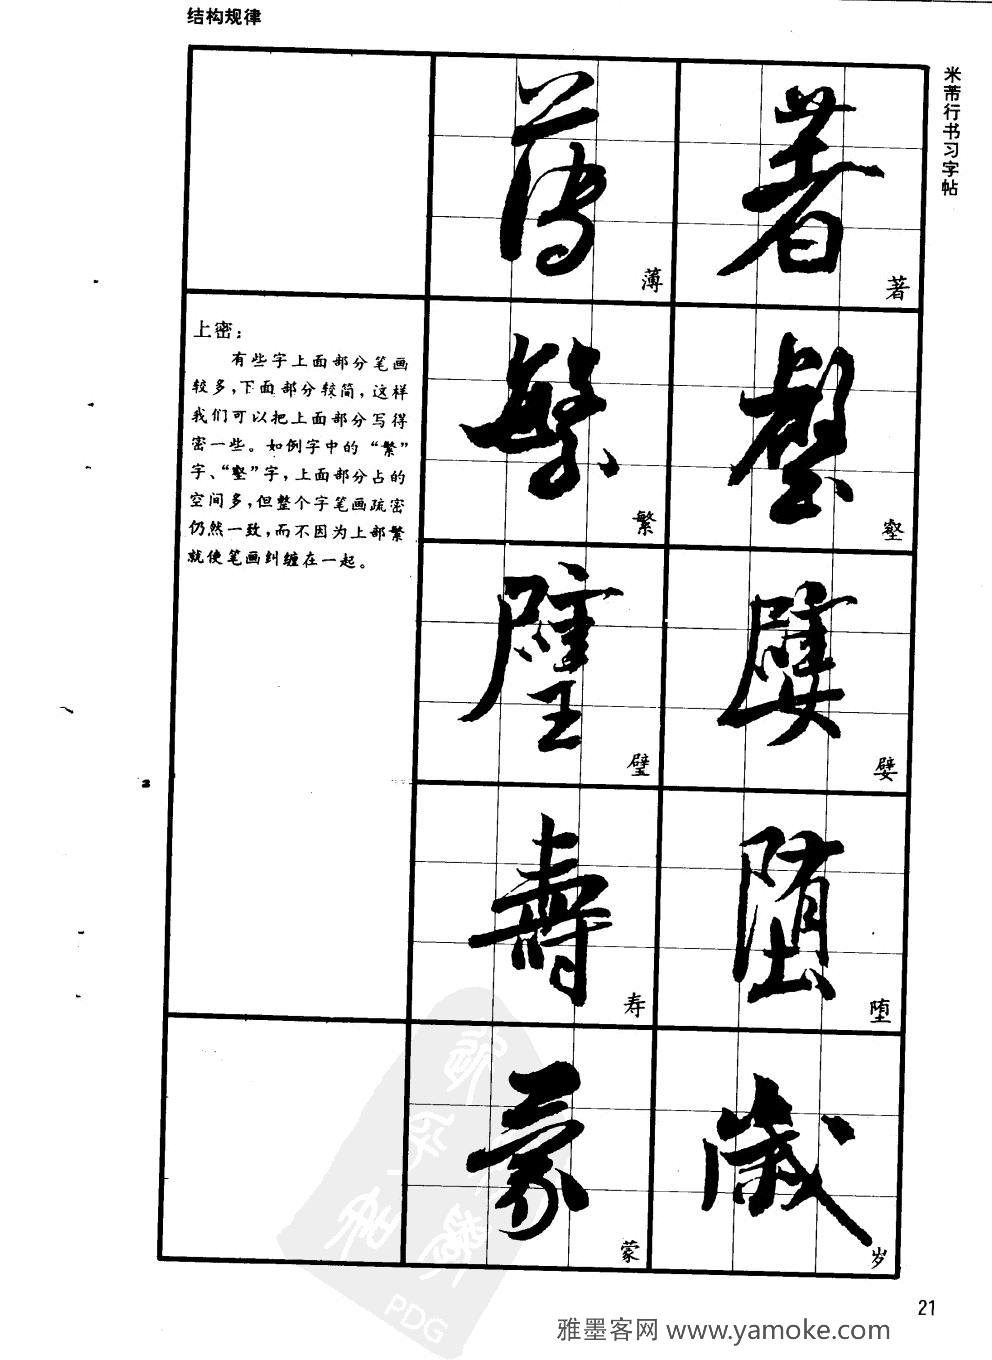 结构规律
米芾行书习字帖
著
薄
壑
繁
嬖
璧
堕
寿
岁
蒙
上密：
有些字上面部分笔画
较多，下面部分较简，这样
我们可以把上面部分写得
密一些。如例字中的“繁”
字、“壑”字，上面部分占的
空间多，但整个字笔画疏密
仍然一致，而不因为上部繁
就使笔画纠缠在一起。
21
PDG
雅墨客网 www.yamoke.com